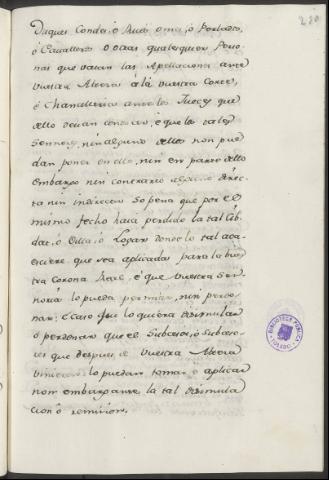 280
Duques Condes, ó Ricos omes, ó Perlados,
ó Cavalleros ó otras qualesquier Perso-
nas que vaian las Apellaciones ante
vuestra Alteza á la vuestra Corte,
é Chancilleria ante los Jueces que
dello devan conocer, é que los tales
Sennores, nin alguno dellos non pue-
dan poner en ello, nin en parte dello
embargo nin contrario alguno direc-
ta nin indirecte so pena que por el
mismo fecho haia perdido la tal Cib-
dad, ó Villa, ó Logar donde lo tal aca-
esciere, que sea aplicada para la vues-
tra Corona Real, é que vuestra Sen-
noria lo pueda permitir, nin perdo-
nar; é caso que lo quiera disimular
ó perdonar que el Subcesor, ó Subceso-
res que despues de Vuestra Alteza
vinieren lo puedan tomar, ó aplicar
non embargante la tal disimula-
cion ó remision.
BIBLIOTECA PUBLICA
TOLEDO